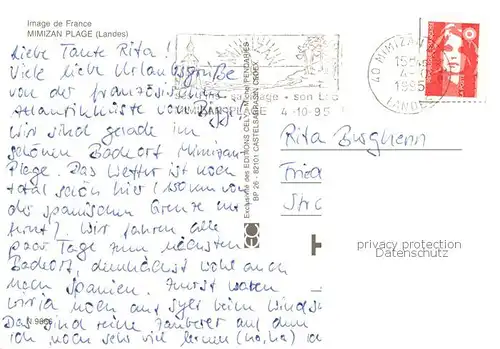 Image de France
MIMIZAN PLAGE (Landes)
Liebe Tante Rita!
Viele liebe Urlaubsgrüße
von der französischen
Atlantikküste von
Wir sind gerade im
schönen Badeort Mimizan
Plage. Das Wetter ist noch
total schön hier (150 km von
der spanischen Grenze ent
fernt). Wir fahren alle
paar Tage zum nächsten
Badeort, demnächst wohl auch
nach Spanien. Zuerst waren
wir ja noch auf Sylt beim Winds
Das sind reine Zauberer auf dem
ich noch sehr viel lernen (ha, ha)
N.9866
son
4-10-95
Exclusivité des EDITIONS CELY - Michel PENDARIES
BP 26 - 82101 CASTELSARRASIN CEDEX
40 MIMIZAN
15H
4-10
1995
LANDES
Rita
Fried
Str
privacy protection
Datenschutz